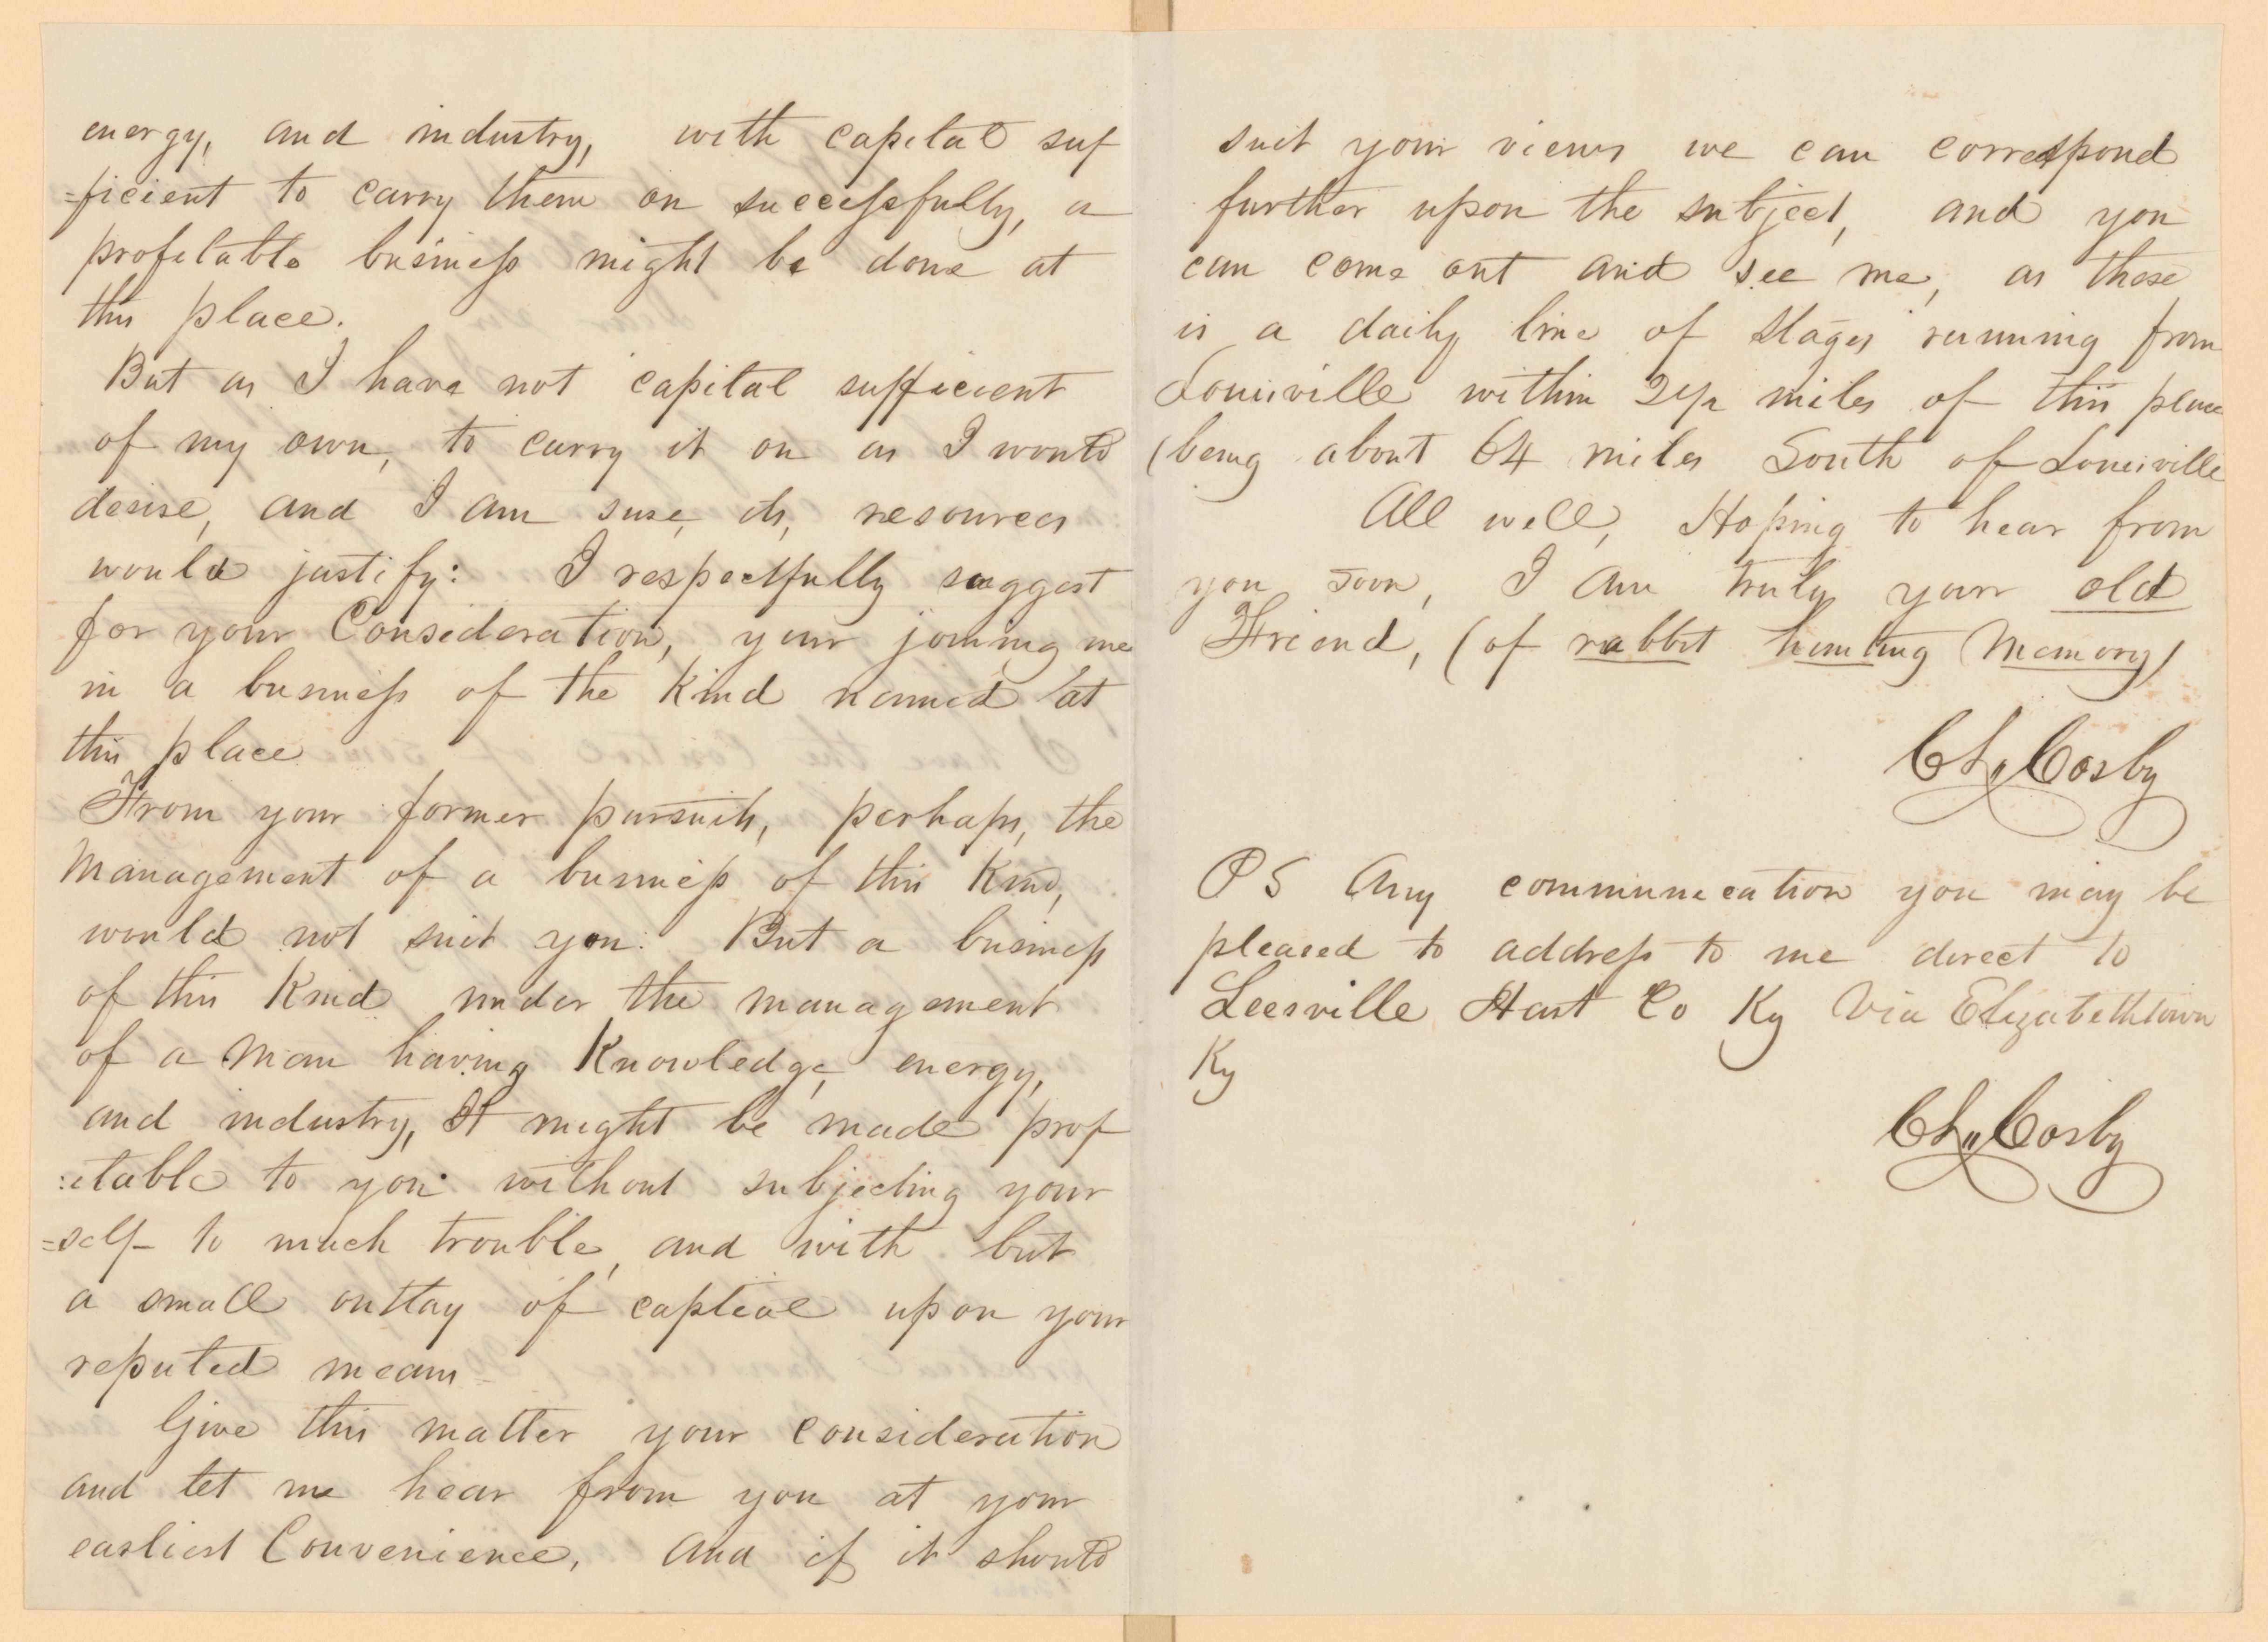 energy, and industry, with capital suf
=ficient to carry them on successfully, a
profitable business might be done at
this place.
But as I have not capital sufficient
of my own, to carry it on as I would
desire, and I am sure, its, resources
would justify: I respectfully suggest
for your Consideration, your joining me
in a business of the Kind named at
this place
From your former pursuits, perhaps, the
Management of a business of this Kind,
would not suit you: But a business
of this Kind under the management
of a Man having Knowledge, energy,
and industry, It might be made prof
:itable to you without subjecting your
=self to much trouble, and with but
a small outlay of captial upon your
reputed means
Give this matter your consideration
and let me hear from you at your
earliest Convenience, And if it should
suit your views we can correspond
further upon the subject, and you
can come out and see me, as there
is a daily line of Stages running from
Louisville within 2 1/2 miles of this place
(being about 64 miles South of Louisville
All well, Hoping to hear from
you soon, I am truly your old
Friend, (of rabbit hunting Memory)
Ch,, Cosby
PS Any communication you may be
pleased to address to me direct to
Leesville Hart Co Ky Via Elizabethtown
Ky
Ch,, Cosby